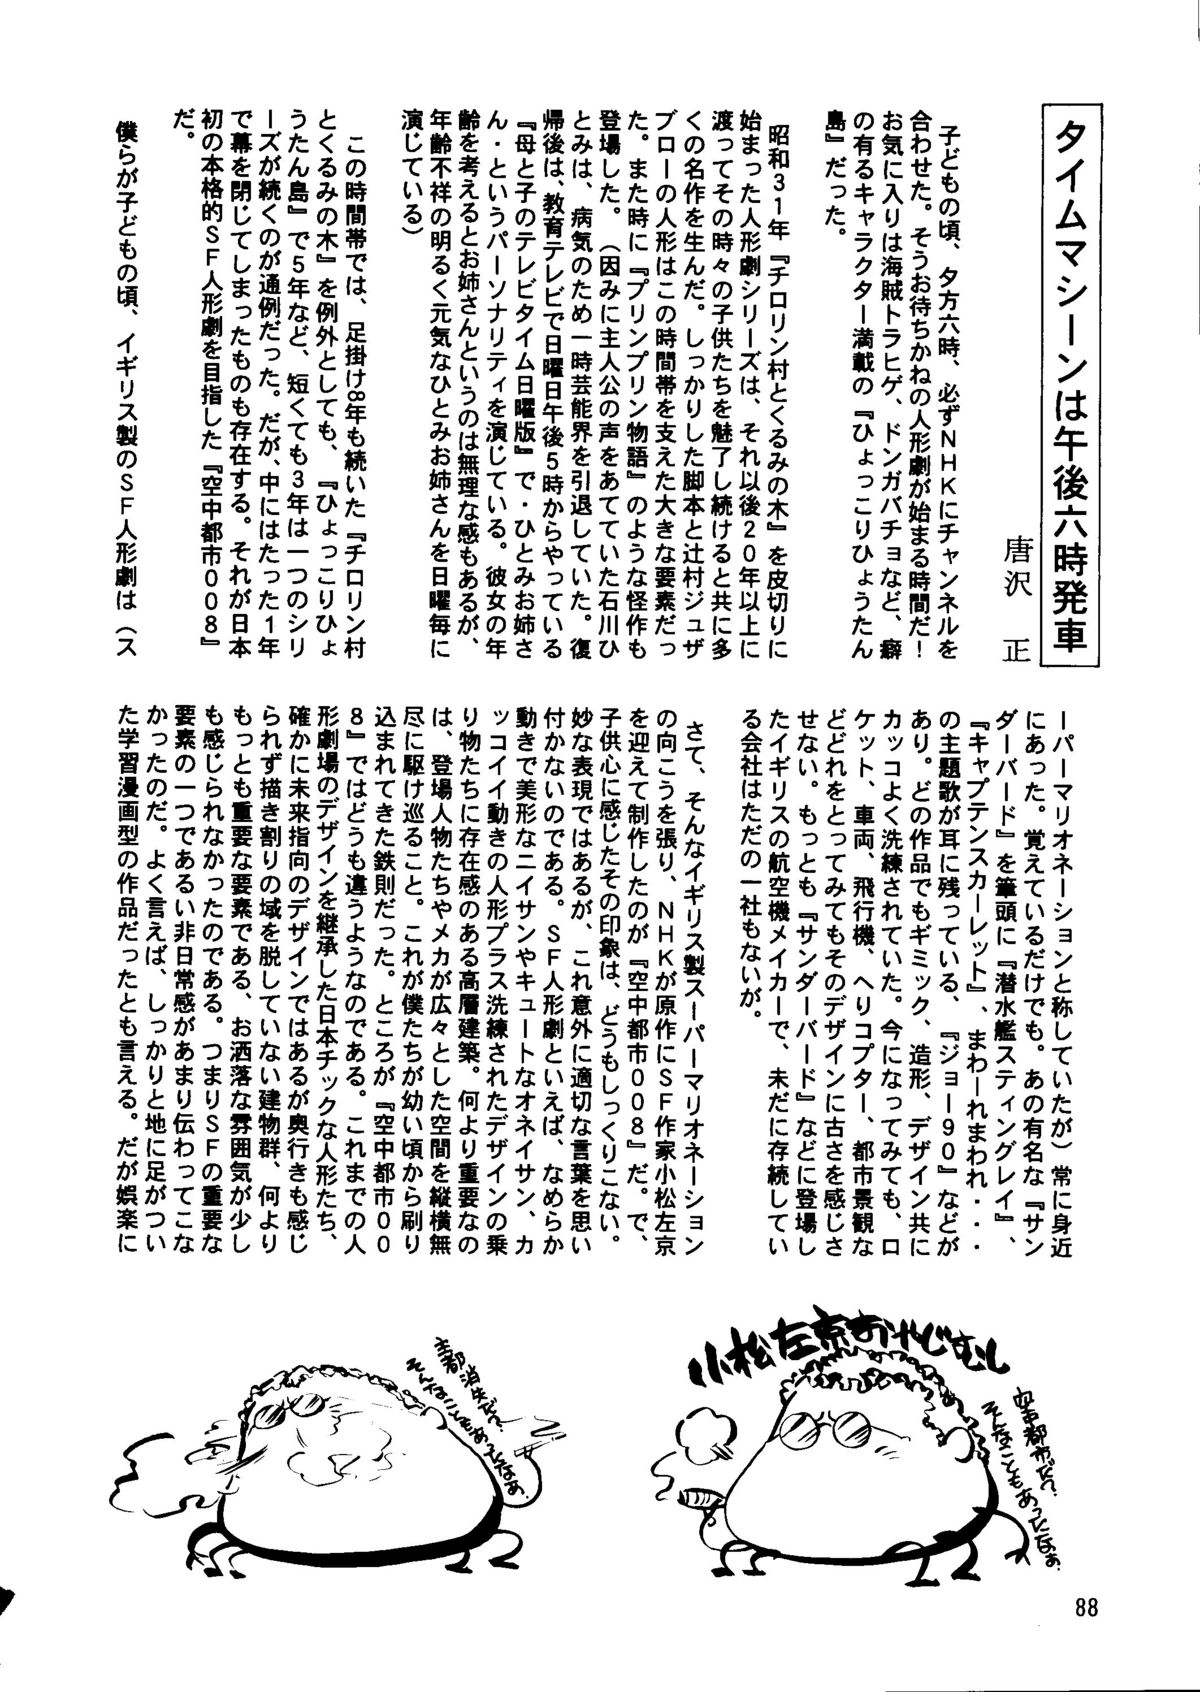 タイムマシーンは午後六時発車
唐沢　正
　子どもの頃、夕方六時、必ずNHKにチャンネルを
合わせた。そうお待ちかねの人形劇が始まる時間だ！
お気に入りは海賊トラヒゲ、ドンガバチョなど、癖
の有るキャラクター満載の『ひょっこりひょうたん
島』だった。
　昭和31年『チロリン村とくるみの木』を皮切りに
始まった人形劇シリーズは、それ以後20年以上に
渡ってその時々の子供たちを魅了し続けると共に多
くの名作を生んだ。しっかりした脚本と辻村ジュザ
ブローの人形はこの時間帯を支えた大きな要素だっ
た。また時に『プリンプリン物語』のような怪作も
登場した。（因みに主人公の声をあてていた石川ひ
とみは、病気のため一時芸能界を引退していた。復
帰後は、教育テレビで日曜日午後5時からやっている
『母と子のテレビタイム日曜版』で・ひとみお姉さ
ん・というパーソナリティを演じている。彼女の年
齢を考えるとお姉さんというのは無理な感もあるが、
年齢不祥の明るく元気なひとみお姉さんを日曜毎に
演じている）
　この時間帯では、足掛け8年も続いた『チロリン村
とくるみの木』を例外としても、『ひょっこりひょ
うたん島』で5年など、短くても3年は一つのシリ
ーズが続くのが通例だった。だが、中にはたった1年
で幕を閉じてしまったものも存在する。それが日本
初の本格的SF人形劇を目指した『空中都市008』
だ。
　僕らが子どもの頃、イギリス製のSF人形劇は（ス
ーパーマリオネーションと称していたが）常に身近
にあった。覚えているだけでも。あの有名な『サン
ダーバード』を筆頭に『潜水艦スティングレイ』、
『キャプテンスカーレット』、まわーれまわれ・・・
の主題歌が耳に残っている、『ジョー90』などが
あり。どの作品でもギミック、造形、デザイン共に
カッコよく洗練されていた。今になってみても、ロ
ケット、車両、飛行機、ヘリコプター、都市景観な
どどれをとってみてもそのデザインに古さを感じさ
せない。もっとも『サンダーバード』などに登場し
たイギリスの航空機メイカーで、未だに存続してい
る会社はただの一社もないが。
　さて、そんなイギリス製スーパーマリオネーション
の向こうを張り、NHKが原作にSF作家小松左京
を迎えて制作したのが『空中都市008』だ。で、
子供心に感じたその印象は、どうもしっくりこない。
妙な表現ではあるが、これ意外に適切な言葉を思い
付かないのである。SF人形劇といえば、なめらか
動きで美形なニイサンやキュートなオネイサン、カ
ッコイイ動きの人形プラス洗練されたデザインの乗
り物たちに存在感のある高層建築。何より重要なの
は、登場人物たちやメカが広々とした空間を縦横無
尽に駆け巡ること。これが僕たちが幼い頃から刷り
込まれてきた鉄則だった。ところが『空中都市00
8』ではどうも違うようなのである。これまでの人
形劇場のデザインを継承した日本チックな人形たち、
確かに未来指向のデザインではあるが奥行きも感じ
られず描き割りの域を脱していない建物群、何より
もっとも重要な要素である、お洒落な雰囲気が少し
も感じられなかったのである。つまりSFの重要な
要素の一つであるい非日常感があまり伝わってこな
かったのだ。よく言えば、しっかりと地に足がつい
た学習漫画型の作品だったとも言える。だが娯楽に
小松左京おやじむし
空中都市だ?
そんなこともあったなぁ。
首都消失だ?
そんなこともあったなぁ。
88